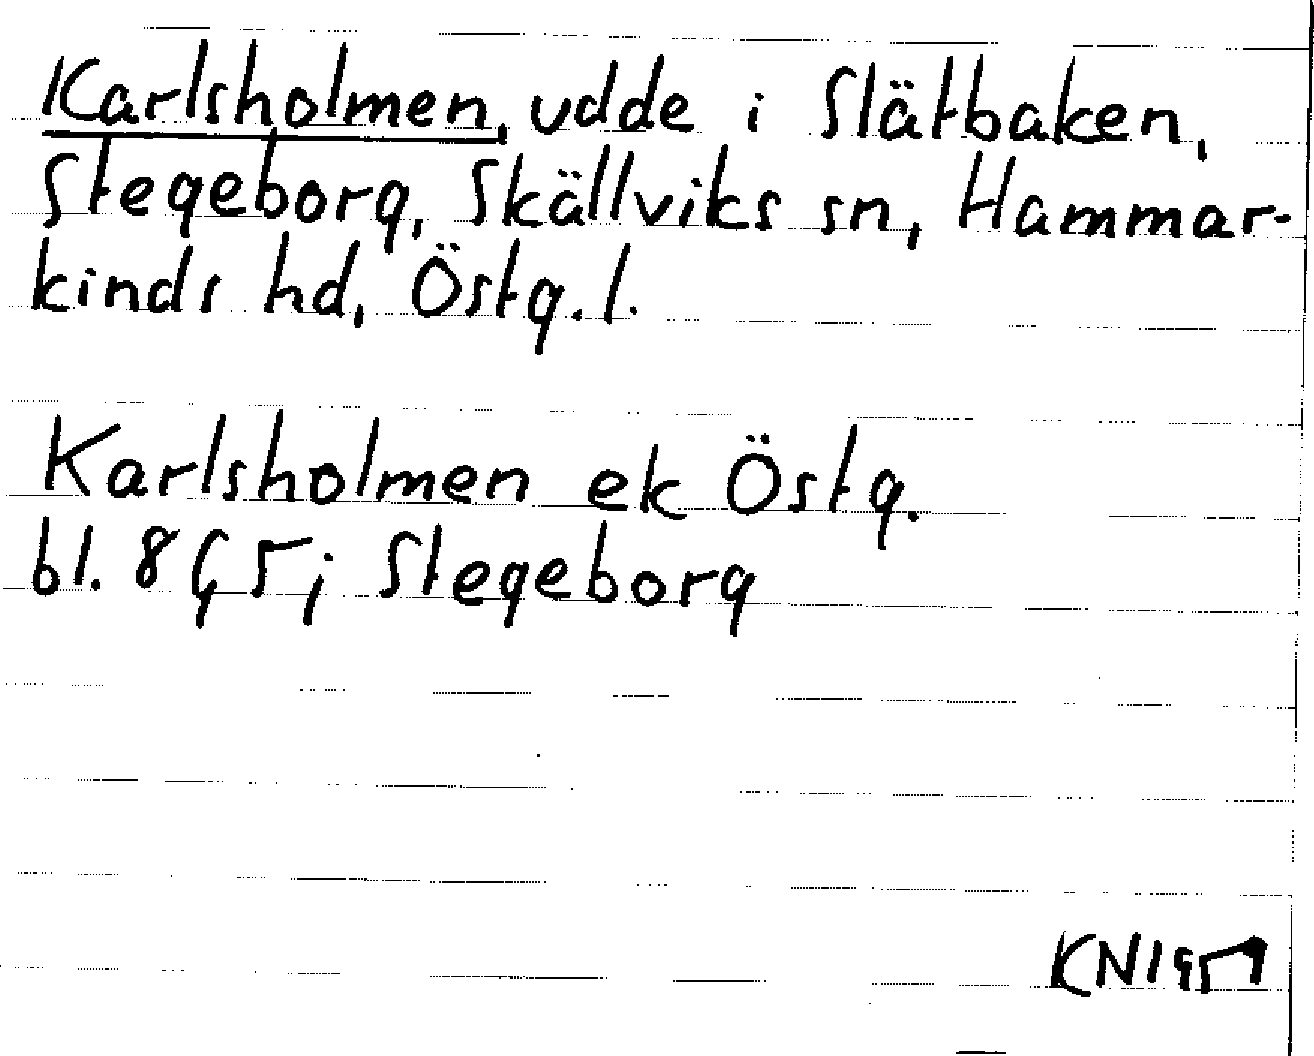 Karlsholmen, udde i Slätbaken,
Stegeborg, Skällviks sn, Hammar-
kinds hd, Östg. l.
Karlsholmen ek Östg.
bl. 8 G 5 j Stegeborg